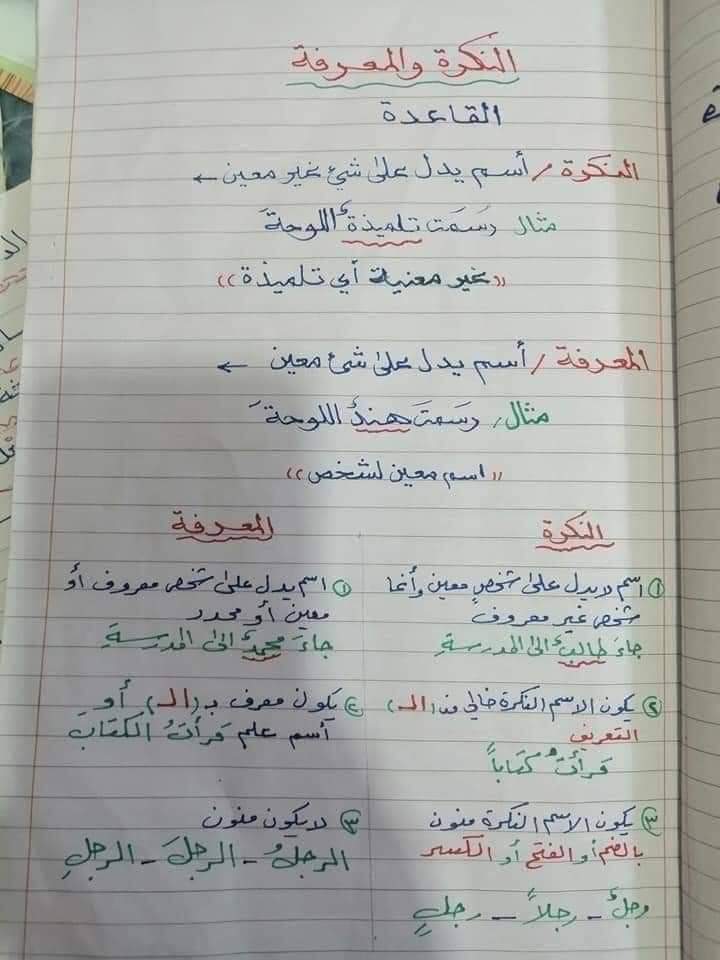 النكرة والمعرفة
القاعدة
النكرة / أسم يدل على شيء غير معين ←
مثال رسَمَت تلميذةٌ اللوحةَ
((غير معنية أي تلميذة))
المعرفة / أسم يدل على شئ معين ←
مثال/ رسَمتَ هندٌ اللوحةَ
((اسم معين لشخص))
النكرة
① اسم لا يدل على شخصٍ معين وأنما
شخص غير معروف
جاءَ طالبٌ الى المدرسةِ
② يكون الاسم النكرة خالي من (الـ)
التعريف
قرأتُ كتاباً
③ يكون الاسم النكرة منون
بالضم أو الفتح أو الكسر
رجلٌ - رجلاً - رجلٍ
المعرفة
① اسم يدل على شخص معروف أو
معين أو محدد
جاءَ محمدٌ الى المدرسةِ
② يكون معرف بـ (الـ) أو
أسم علم قرأتُ الكتابَ
③ لا يكون منون
الرجلُ - الرجلَ - الرجلِ